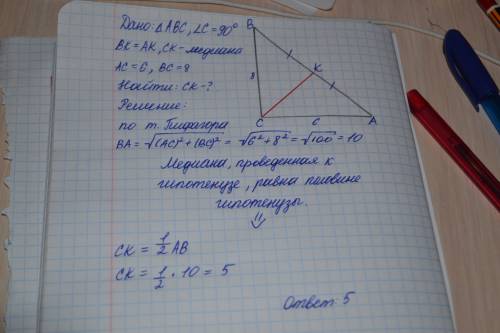 Дано: △ABC, ∠C = 90°
BK = AK, CK – медиана
AC = 6, BC = 8
Найти: CK - ?
Решение:
по т. Пифагора
BA = √(AC)² + (BC)² = √6² + 8² = √100 = 10
Медиана, проведенная к
гипотенузе, равна половине
гипотенузы.
⇓
CK = 1/2 AB
CK = 1/2 · 10 = 5
Ответ: 5
B
K
8
C
6
A